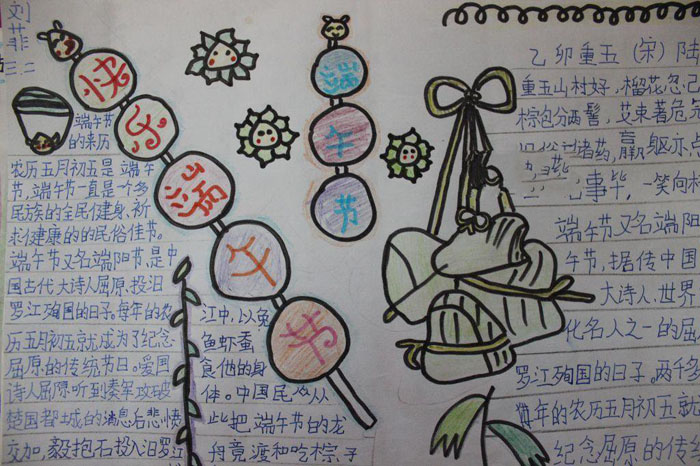 刘
菲
三.二
快
乐
端
午
节
端
午
节
端午节
的来历
农历五月初五是端午
节,端午节一直是个多
民族的全民健身、祈
求健康的的民俗佳节。
端午节又名端阳节,是中
国古代大诗人屈原,投汨
罗江殉国的日子。每年的农
历五月初五就成为了纪念
屈原的传统节日。爱国
诗人屈原听到秦军攻破
楚国都城的消息后悲愤
交加,毅抱石投入汨罗
江中,以免
鱼虾蚕
食他的身
体。中国民
此把端午节的龙
舟竞渡和吃棕子
乙卯重五(宋)陆
重五山村好,榴花忽已
棕包分两髻,艾束著危
药,羸躯亦点
事毕,一笑向
端午节又名端阳
午节,据传中国
大诗人、世界
化名人之一的屈
罗江殉国的日子。两千多
每年的农历五月初五就
纪念屈原的传